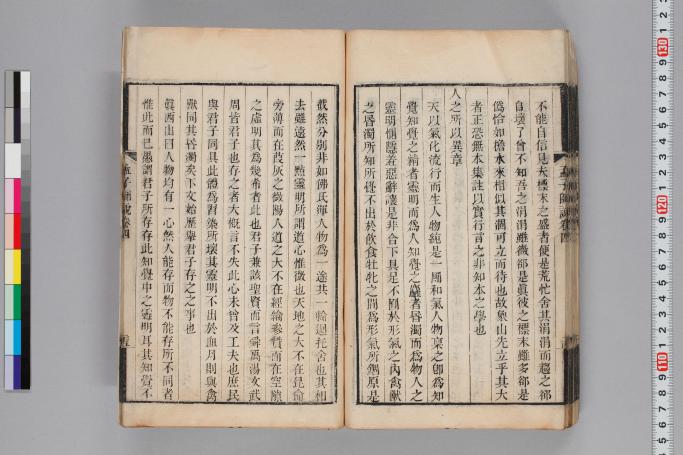 不能自信見夫標末之盛者便是荒忙舍其涓涓而趨之卻
自壞了曾不知吾之涓涓雖微卻是眞彼之標末雖多卻是
僞恰如擔水來相似其涸可立而待也故象山先立乎其大
者正恐無本集註以實行言之非知本之學也
人之所以異章
天以氣化流行而生人物純是一團和氣人物稟之卽爲知
覺知覺之精者靈明而爲人知覺之麤者昏濁而爲物人之
靈明惻隱羞惡辭讓是非合下具足不囿於形氣之內禽獸
之昏濁所知所覺不出於飲食牡牝之間爲形氣所錮原是
截然分別非如佛氏渾人物爲一途共一輪迴托舍也其相
去雖遠然一點靈明所謂道心惟微也天地之大不在昆侖
旁薄而在葭灰之微陽人道之大不在經綸參贊而在空隙
之虛明其爲幾希者此也君子兼該聖賢而言舜禹湯文武
周皆君子也存之者大概言不失此心未曾及工夫也庶民
與君子同具此體爲習染所壞其靈明不出於血肉則與禽
獸同其昏濁矣下文始歷舉君子存之之事也
眞西山曰人物均有一心然人能存而物不能存所不同者
惟此而已愚謂君子所存存此知覺中之靈明耳其知覺不
孟子師說卷四